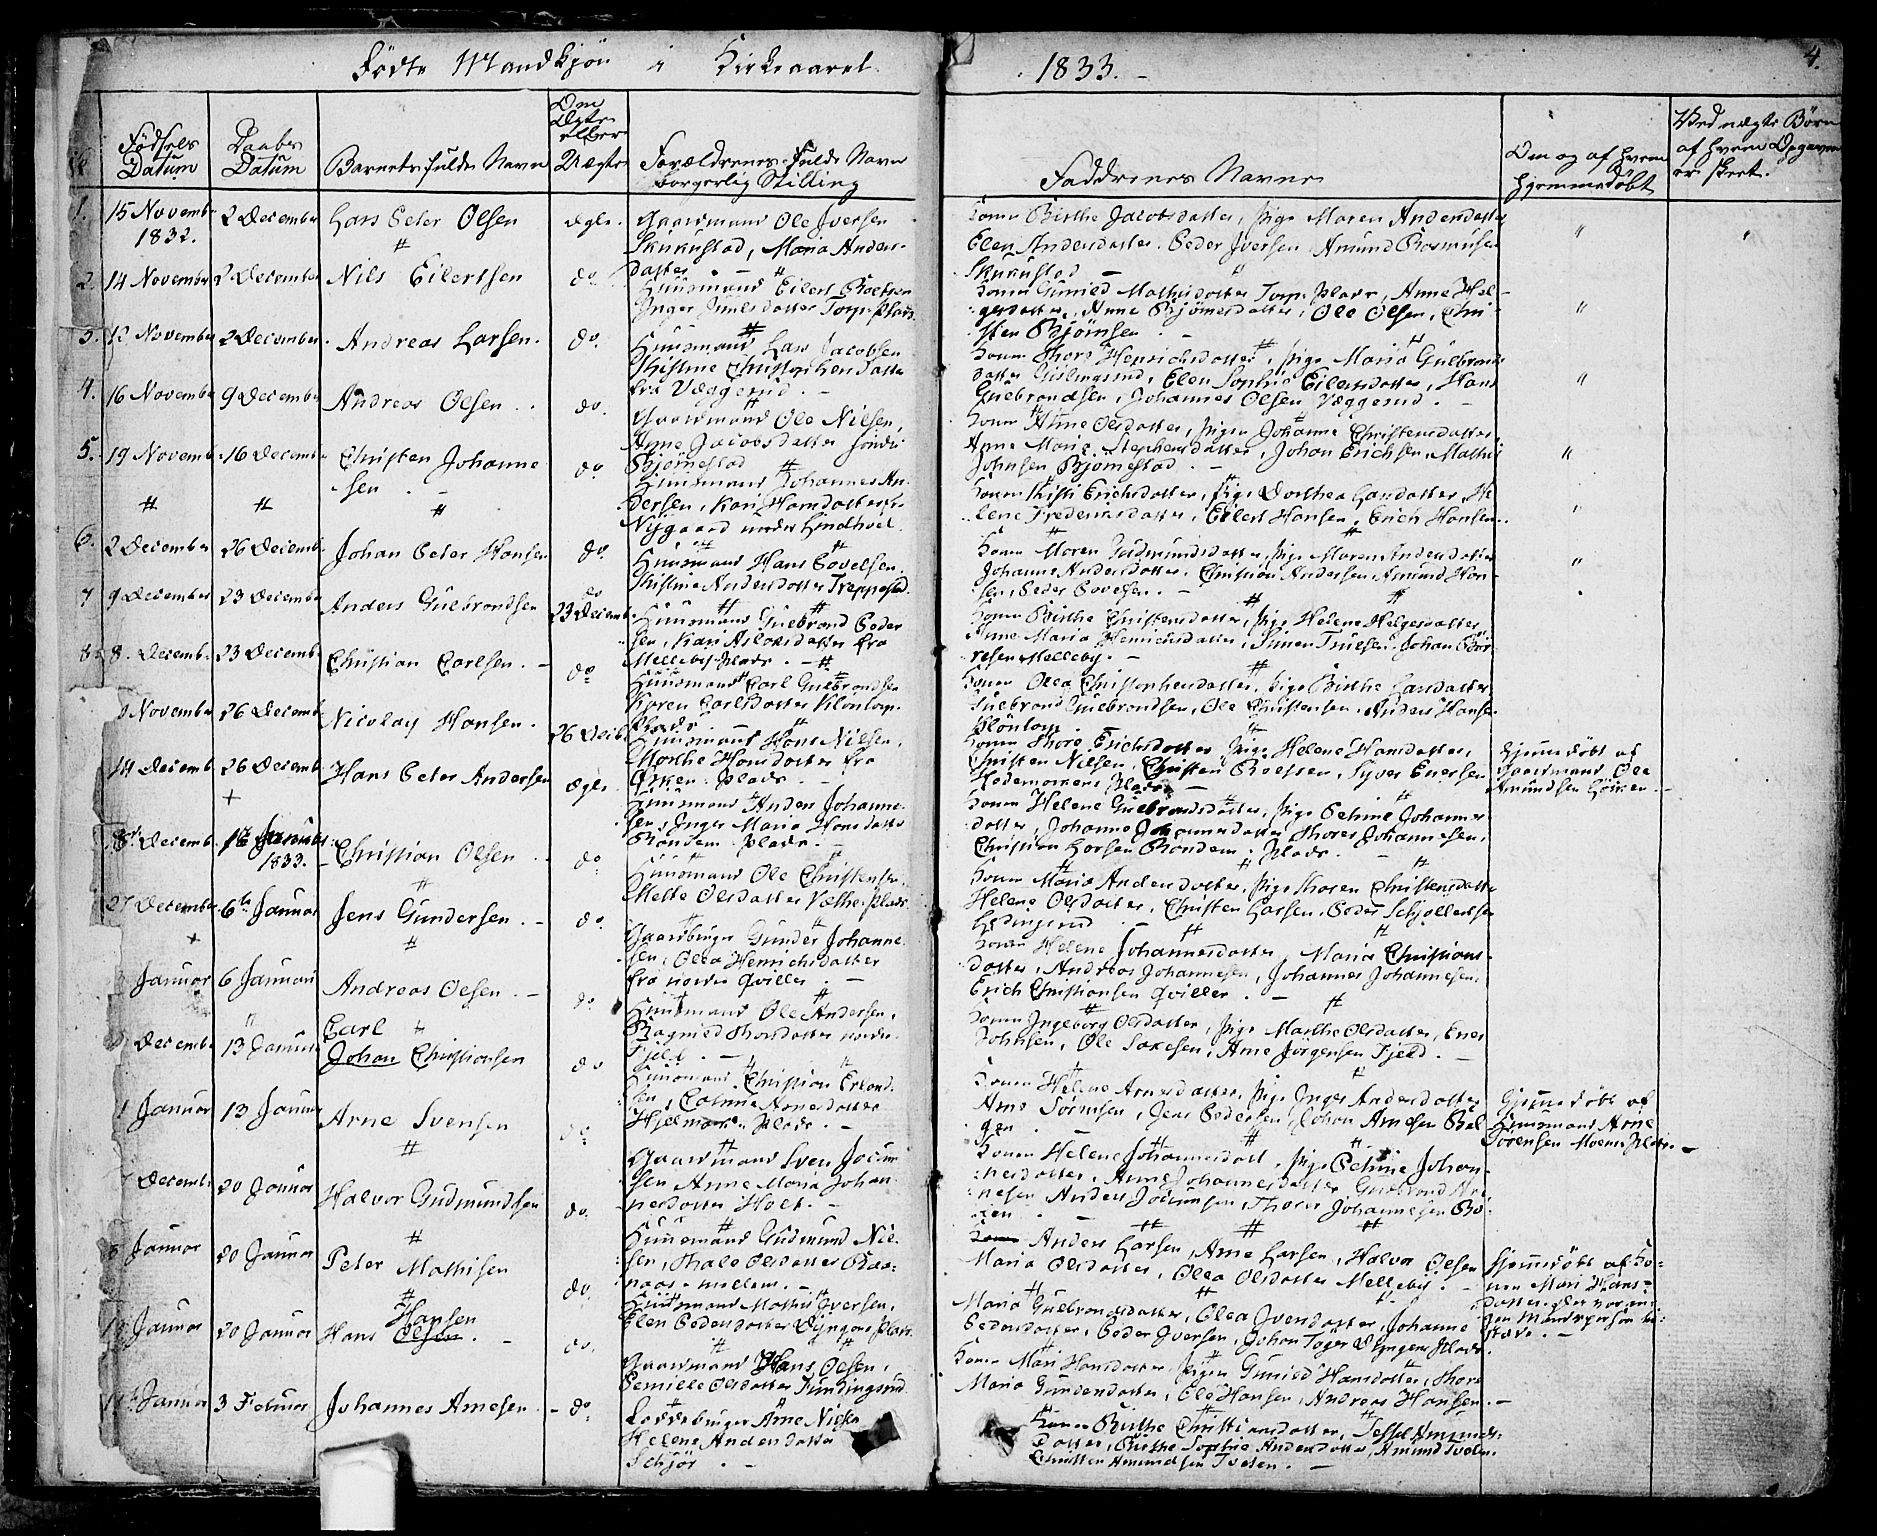 Födte Mandkjön i Kirkeaaret 1833. 4.
Födsels Datum
Daabs Datum
Barnets fulde Navn
Om Ægte eller Uægte
Forældrenes fulde Navn borgerlig Stilling
Faddrenes Navne
Om og af hvem hjemmedöbt
Ved uægte Börn af hvem Opgaven er skeet.
1. 15 Novemb 1832. 2 December Lars Peder Olsen ægte.
Gaardmand Ole Iversen
Skukustad, Maria Anders-
datter
Konen Birthe Jacobsdatter, Pige Maren Andersdatter
Elen Andersdatter. Peder Iversen Amund Rasmusen
Skukustad
2. 14 November 2 December Nils Eilertsen do
Huusmand Eilert Roelsen
Inger Juulsdatter Torp. Plads.
Konen Gunild Mathisdatter Torp. Plads, Anne Hel-
gesdatter, Anne Björnsdatter, Ole Olsen, Chri-
sten Björnsen
3. 12 November 2 December Andreas Larsen. do.
Huusmand Lars Jacobsen
Kistine Christophersdatter
fra Væggerud.
Konen Thore Henrichsdatter, Pige Maria Gulbrands
datter Gislingrud, Elen Sophie Eilersdatter, Hans
Gulbrandsen, Johannes Olsen Væggerud.
4. 16 November 9 December Andreas Olsen do.
Gaardmand Ole Nilsen,
Anne Jacobsdatter söndre
Björnestad
Konen Anne Olsdatter, Pigen Johanne Christensdatter,
Anne Maria Stephensdatter, Johan Erichsen, Mathis
Johnsen Björnestad.
5. 19 Novemb 16 Decemb Christen Johanne
sen do
Huusmand Johannes An-
dersen, Kari Hansdatter
Nygaard under Lindhoel.
Konen Kisti Erichsdatter, Pige Dorthea Larsdatter, He
lene Frederiksdatter, Eilert Hansen, Erich Hansen.
6. 2 December 26 Decemb Johan Peter Hansen do
Huusmand Hans Povelsen.
Kistine Andersdatter Treppestad.
Konen Maren Gudmundsdatter, Pige Maren Andersdatter
Johanne Andersdatter, Christian Andersen Amund Han-
sen, Peder Povelsen.
7 9 December 23 December Anders Gulbrandsen do 23 Decemb
Huusmand Gulbrand Peder
sen, Kari Aslaksdatter fra
Melleby Plads.
Konen Birthe Christensdatter, Pige Helene Helgesdatter
Anne Maria Henrichsdatter, Simen Truelsen, Johan Bör
resen Melleby.
8 8. Decemb. 23 Decemb Christian Carlsen. do
Huusmand Carl Gulbrandsen
Karen Carlsdatter Klöntorp.
Plads
Konen Olea Christophersdatter, Pige Birthe Larsdatter
Gulbrand Gulbrandsen, Ole Christensen, Anders Hansen
Klöntorp.
November 26 Decemb Nicolay Hansen. 26 Decbr.
Huusmand Hans Nilsen,
Marthe Hansdatter fra
Görken. Plads.
Konen Thore Erichsdatter Pige Helene Hansdatter,
Christen Nilsen, Christen Roelsen, Syver Enersen
Hedemarken Plads
Hjemmedöbt af
Gaardmand Ole
Amundsen Görken.
14 Decemb 26 Decemb Hans Peter Andersen ægte.
Huusmand Anders Johanne-
sen, Inger Maria Hansdatter
Randem. Plads.
Konen Helene Gulbrandsdatter, Pige Petrine Johannes
datter, Johanne Johannesdatter Thores Johannesen,
Christian Larsen Randem. Plads.
18 Decemb. 1 Januar 1833. Christian Olsen do
Huusmand Ole Christensen
Mette Olsdatter Væthe. Plads.
Konen Maria Andersdatter, Pige Thoren Christensdatter
Helene Olsdatter, Christen Larsen, Peder Schjollersen
27 December 6te Januar Jens Gundersen. do.
Gaardbruger Gunder Johanne
sen, Olea Henrichsdatter
fra nordre Qviller.
Konen Helene Johannesdatter, Maria Christians-
datter, Andreas Johannesen, Johannes Johannesen.
Erich Christiansen Qviller.
Januar 6 Januar Andreas Olsen. do
Huusmand Ole Andersen,
Ragnild Thorsdatter nordre
Fjeld.
Konen Ingeborg Olsdatter, Pige Marthe Olsdatter, Ener
Johnsen, Ole Saxesen, Arne Jörgensen Fjeld.
Decemb 13 Januar Carl
Johan Christiansen do
Huusmand Christian Erland-
sen, Arnesdatter
Hjelmark. Plads.
Konen Helene Arnesdatter, Pige Inger Andersdatter
Arne Sörensen, Jens Pedersen, Johan Arnesen Böl
gen
Hjemmedöbt af
Huusmand Arne
Sörensen Moens Plads
1 Januar 13 Januar Arne Svensen do
Gaardmand Sven Jocum
sen Anne Maria Johan-
nesdatter Holt.
Konen Helene Johannesdatt, Pige Petrine Johan-
nesdatter, Anne Johannesdatter Gulbrand Ar-
nesen Anders Jocumsen, Thores Johannesen Bo-
Decemb 20 Januar Halvor Gudmundsen do.
Huusmand Gudmund Niel-
sen, Thale Olsdatter Raa-
naas mellem.
Anders Larsen, Arne Larsen, Halvor Olsen
Maria Olsdatter, Olea Olsdatter Melleby.
Hjemmedöbt af Ko-
nen Mari Hans-
datter, der var in-
gen Mandsperson til-
stæde.
Januar 20 Januar Peter Mathisen do.
Huusmand Mathis Iversen,
Elen Pedersdatter Dyngen. Plads.
Maria Gulbrandsdatter, Olea Iversdatter, Johanne
Pedersdatter, Peder Iversen, Johan Tager Dyngen Plads.
Januar 20 Januar Hans Olsen Hansen. do.
Gaardmand Hans Olsen,
Pernille Olsdatter Kundingrud.
Konen Mari Hansdatter, Pigen Gunild Hansdatter, Thore
Maria Gundersdatter, Ole Hansen, Andreas Hansen.
Januar 3 Februar Johannes Arnesen. do
Loddebruger Arne Nielsen
Helene Andersdatter
Schjör
Konen Birthe Christiansdatter, Sessel Amunds
datter, Birthe Sophie Andersdatter, Amund Tveten,
Christen Amundsen Tveten.